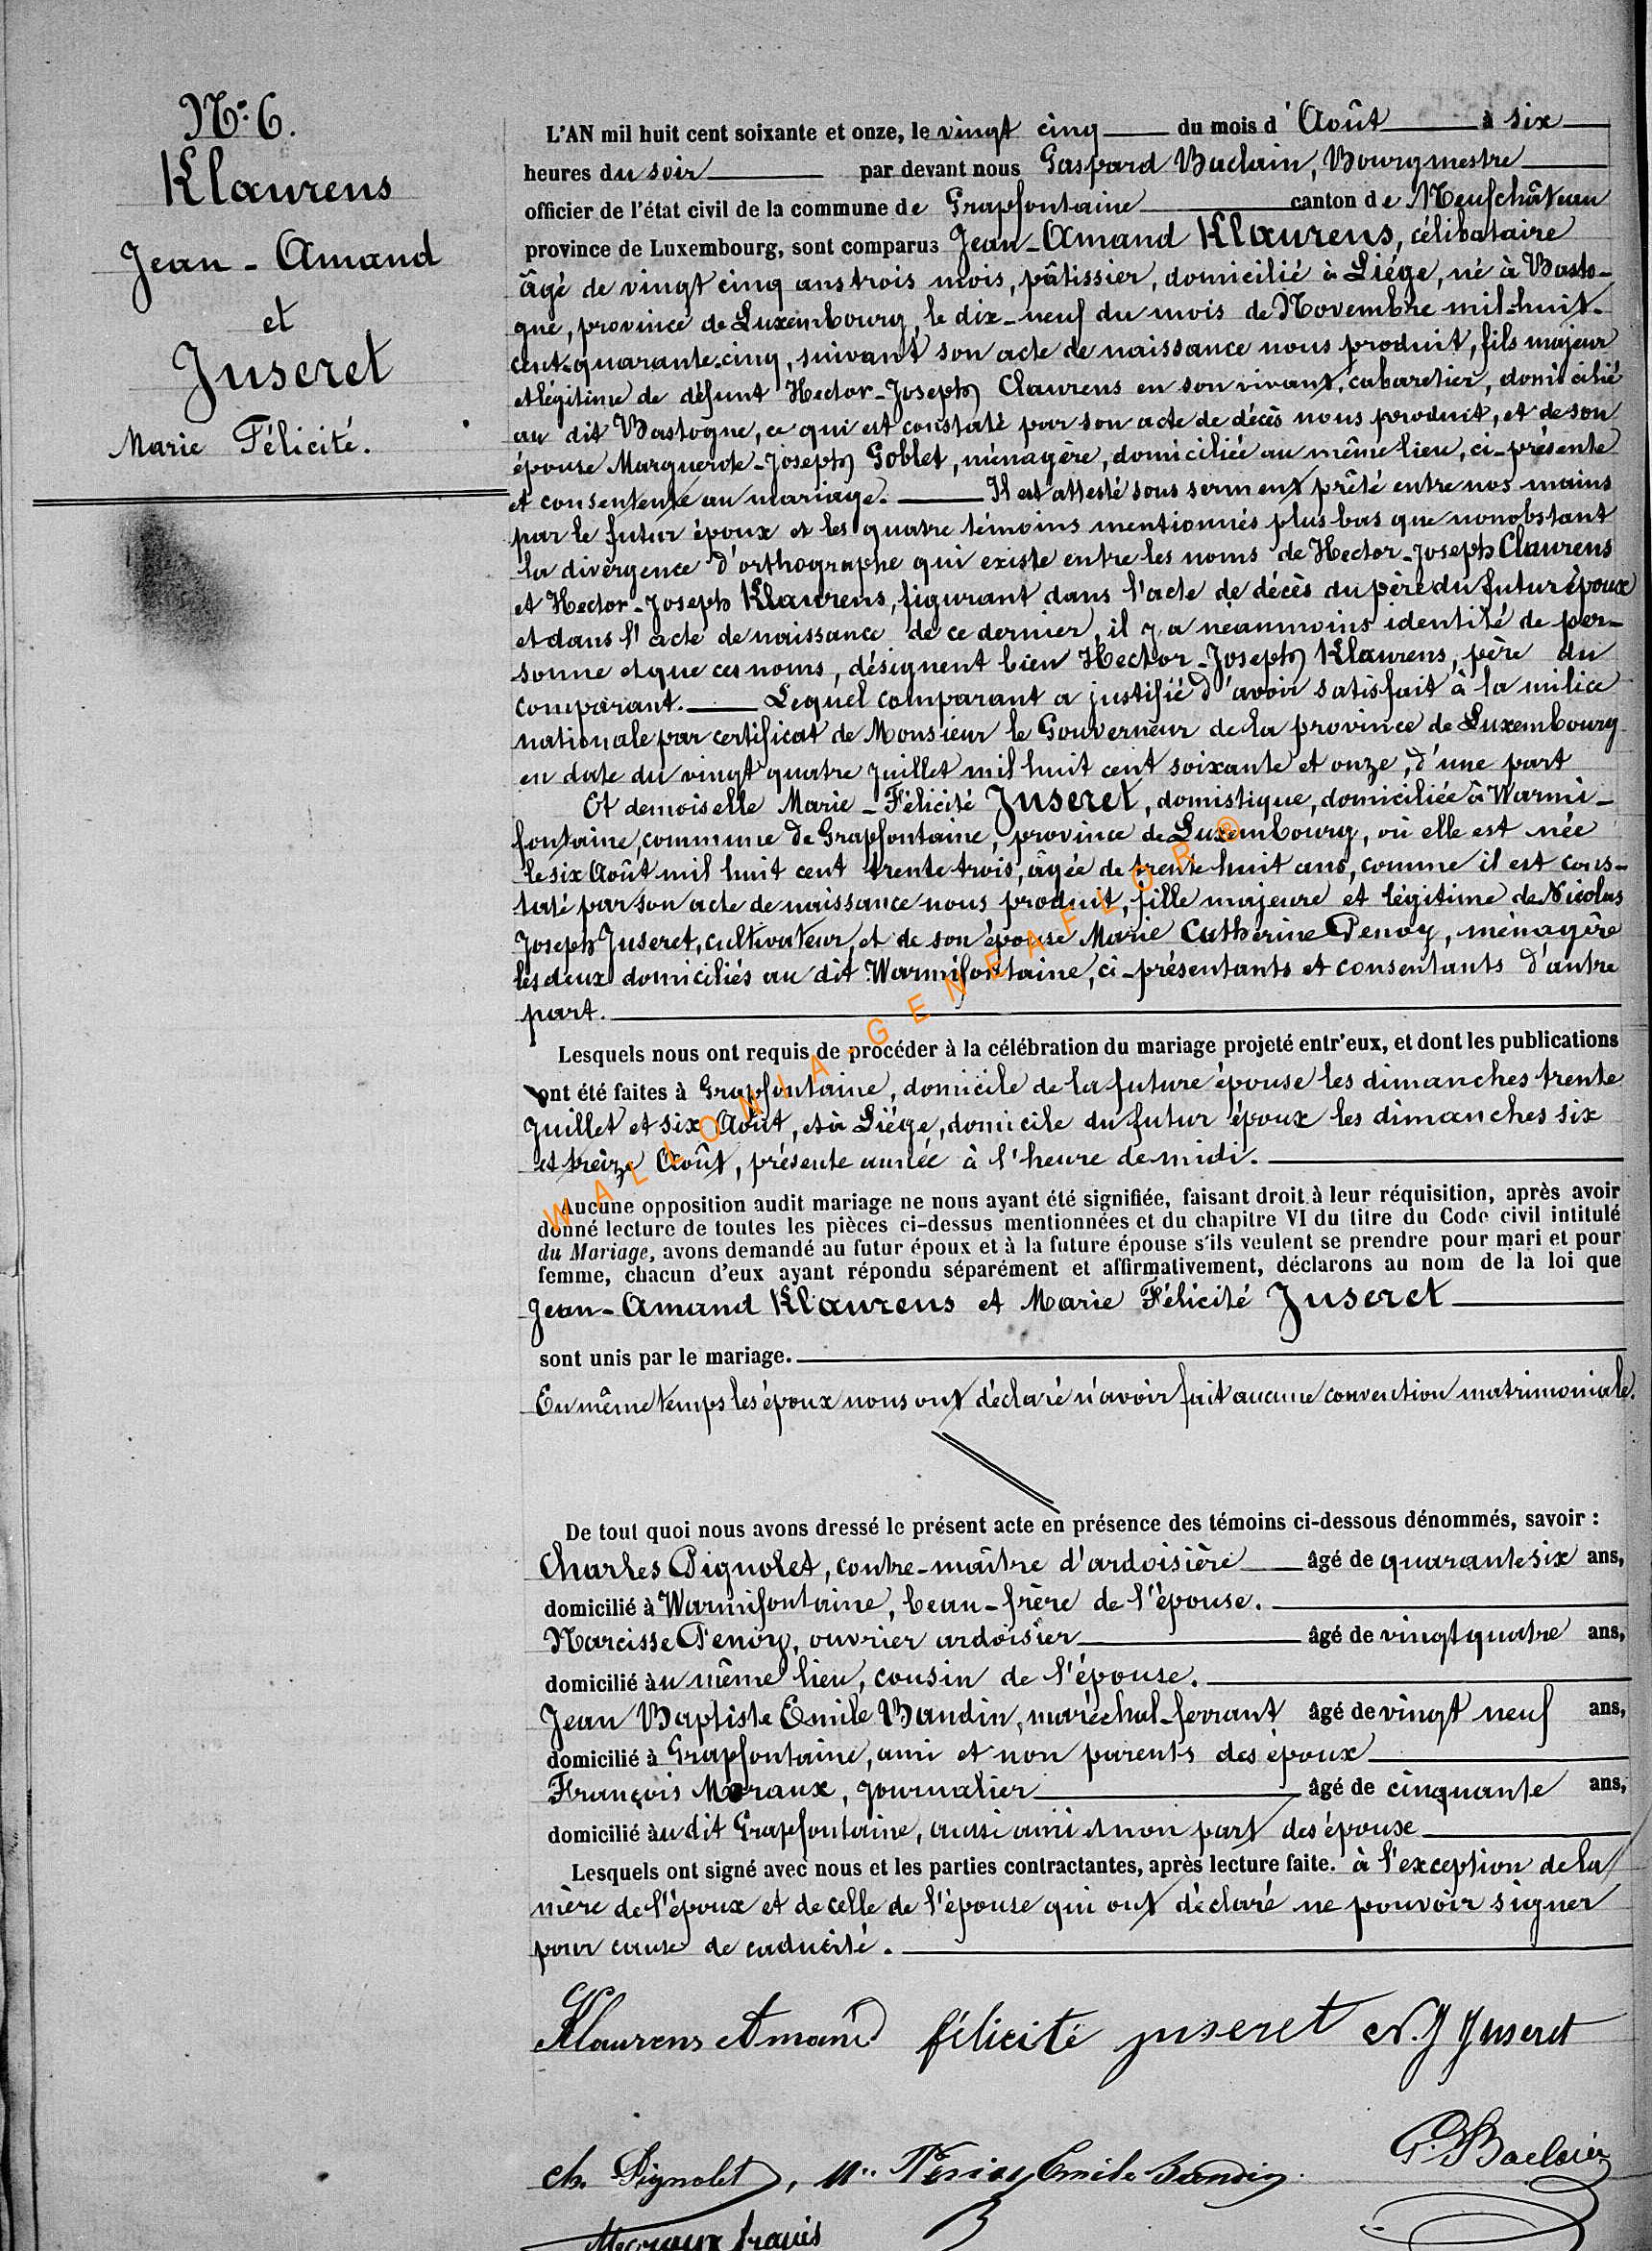 N° 6.
Klaurens
Jean - Amand
et
Juseret
Marie Félicité.
L'AN mil huit cent soixante et onze, le vingt cinq du mois d'Août à six
heures du soir par devant nous Gaspard Baclain, Bourgmestre
officier de l'état civil de la commune de Grapfontaine canton de Neufchâteau
province de Luxembourg, sont comparus Jean-Amand Klaurens, célibataire
âgé de vingt cinq ans trois mois, pâtissier, domicilié à Liége, né à Basto-
gne, province de Luxembourg, le dix-neuf du mois de Novembre mil-huit-
cent-quarante-cinq, suivant son acte de naissance nous produit, fils majeur
et légitime de défunt Hector-Joseph Claurens en son vivant, cabaretier, domicilié
au dit Bastogne, ce qui est constaté par son acte de décès nous produit, et de son
épouse Marguerote-Joseph Goblet, ménagère, domiciliée au même lieu, ci-présente
et consentente au mariage. Il est attesté sous serment prêté entre nos mains
par le futur époux et les quatre témoins mentionnés plus bas que nonobstant
la divergence d'orthographe qui existe entre les noms de Hector-Joseph Claurens
et Hector-Joseph Klaurens, figurant dans l'acte de décès du père du futur époux
et dans l'acte de naissance de ce dernier, il y a néanmoins identité de per-
sonne et que ces noms, désignent bien Hector-Joseph Klaurens, père du
comparant. Lequel comparant a justifié d'avoir satisfait à la milice
nationale par certificat de Monsieur le Gouverneur de la province de Luxembourg
en date du vingt quatre Juillet mil huit cent soixante et onze, d'une part
Et demoiselle Marie-Félicité Juseret, domistique, domiciliée à Warmi-
fontaine, commune de Grapfontaine, province de Luxembourg, où elle est née
le six Août mil huit cent trente trois, âgée de trente huit ans, comme il est cons-
taté par son acte de naissance nous produit, fille majeure et légitime de Nicolas
Joseph Juseret, cultivateur, et de son épouse Marie Catherine Penoy, ménagère
les deux domiciliés au dit Warmifontaine, ci-présentants et consentants d'autre
part.
Lesquels nous ont requis de procéder à la célébration du mariage projeté entr'eux, et dont les publications
ont été faites à Grapfontaine, domicile de la future épouse les dimanches trente
Juillet et six Août, et à Liége, domicile du futur époux les dimanches six
et treize Août, présente année à l'heure de midi.
Aucune opposition audit mariage ne nous ayant été signifiée, faisant droit à leur réquisition, après avoir
donné lecture de toutes les pièces ci-dessus mentionnées et du chapitre VI du titre du Code civil intitulé
du Mariage, avons demandé au futur époux et à la future épouse s'ils veulent se prendre pour mari et pour
femme, chacun d'eux ayant répondu séparément et affirmativement, déclarons au nom de la loi que
Jean-Amand Klaurens et Marie Félicité Juseret
sont unis par le mariage.
En même temps les époux nous ont déclaré n'avoir fait aucune convention matrimoniale.
De tout quoi nous avons dressé le présent acte en présence des témoins ci-dessous dénommés, savoir :
Charles Pignolet, contre-maître d'ardoisière âgé de quarante six ans,
domicilié à Warmifontaine, beau-frère de l'épouse.
Narcisse Penoy, ouvrier ardoisier âgé de vingt quatre ans,
domicilié au même lieu, cousin de l'épouse.
Jean Baptiste Emile Baudin, maréchal-ferrant âgé de vingt neuf ans,
domicilié à Grapfontaine, ami et non parents des époux
François Moraux, journalier âgé de cinquante ans,
domicilié au dit Grapfontaine, aussi ami et non part des époux
Lesquels ont signé avec nous et les parties contractantes, après lecture faite. à l'exception de la
mère de l'époux et de celle de l'épouse qui ont déclaré ne pouvoir signer
pour cause de caducité.
Klaurens Amand félicité juseret N. J Juseret
G. Baclain
Ch. Pignolet, N. Penoy Emile Baudin
françois
WALLONIA-GENEAFLOR®